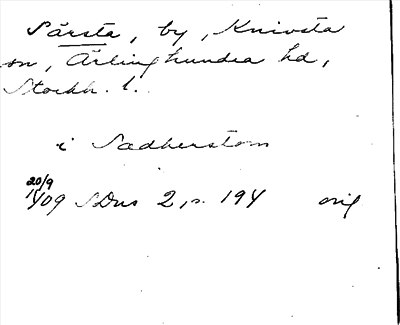 Särsta, by, Knivsta
sn, Ärlinghundra hd,
Stockh. l.
i Sadherstom
20/9
1409 SDns 2, s. 194 orig